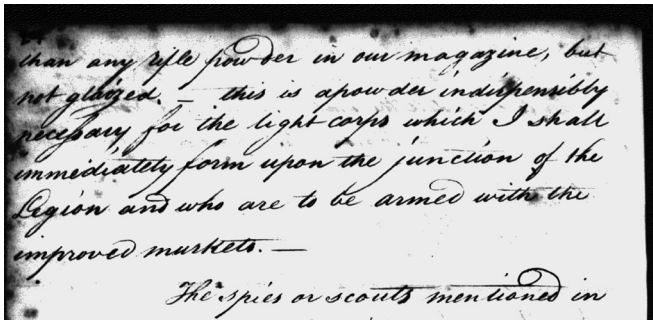 than any rifle powder in our magazine, but
not glaized. — this is a powder indispensibly
necessary for the light corps which I shall
immediately form upon the junction of the
Legion and who are to be armed with the
improved muskets. —
The spies or scouts mentioned in